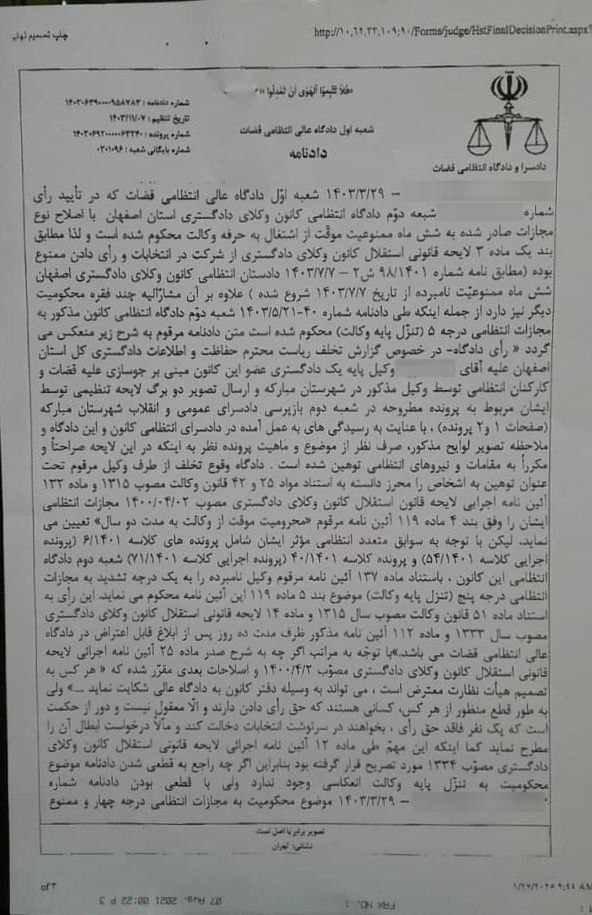 چاپ تصمیم نهایی
http://10,62,33,109:90/Forms/judge/HstFinalDecisionPrint.aspx?
«فلا تتبعوا الهوی أن تعدلوا»
شماره دادنامه : ۱۴۰۳۰۶۳۹۰۰۰۰۹۵۸۷۸۳
تاریخ تنظیم : ۱۴۰۳/۱۱/۰۷
شماره پرونده : ۱۴۰۳۰۶۹۲۰۰۰۰۰۶۳۲۴۰
شماره بایگانی شعبه : ۰۳۰۱۰۹۶
شعبه اول دادگاه عالی انتظامی قضات
دادنامه
دادسرا و دادگاه انتظامی قضات
– ۱۴۰۳/۳/۲۹ شعبه اوّل دادگاه عالی انتظامی قضات که در تأیید رأی
شماره شبعه دوّم دادگاه انتظامی کانون وکلای دادگستری استان اصفهان با اصلاح نوع
مجازات صادر شده به شش ماه ممنوعیت موقّت از اشتغال به حرفه وکالت محکوم شده است و لذا مطابق
بند یک ماده ۳ لایحه قانونی استقلال کانون وکلای دادگستری از شرکت در انتخابات و رأی دادن ممنوع
بوده (مطابق نامه شماره ۹۸/۱۴۰۱ ش۲ – ۱۴۰۳/۷/۷ دادستان انتظامی کانون وکلای دادگستری اصفهان
شش ماه ممنوعیّت نامبرده از تاریخ ۱۴۰۳/۷/۷ شروع شده ) علاوه بر آن مشارّالیه چند فقره محکومیت
دیگر نیز دارد از جمله اینکه طی دادنامه شماره ۴۰-۱۴۰۳/۵/۲۱ شعبه دوّم دادگاه انتظامی کانون مذکور به
مجازات انتظامی درجه ۵ (تنزّل پایه وکالت) محکوم شده است متن دادنامه مرقوم به شرح زیر منعکس می
گردد « رأی دادگاه- در خصوص گزارش تخلف ریاست محترم حفاظت و اطلاعات دادگستری کل استان
اصفهان علیه آقای وکیل پایه یک دادگستری عضو این کانون مبنی بر جوسازی علیه قضات و
کارکنان انتظامی توسط وکیل مذکور در شهرستان مبارکه و ارسال تصویر دو برگ لایحه تنظیمی توسط
ایشان مربوط به پرونده مطروحه در شعبه دوم بازپرسی دادسرای عمومی و انقلاب شهرستان مبارکه
(صفحات ۱ و۲ پرونده) ، با عنایت به رسیدگی های به عمل آمده در دادسرای انتظامی کانون و این دادگاه و
ملاحظه تصویر لوایح مذکور، صرف نظر از موضوع و ماهیت پرونده نظر به اینکه در این لایحه صراحتاً و
مکرراً به مقامات و نیروهای انتظامی توهین شده است . دادگاه وقوع تخلف از طرف وکیل مرقوم تحت
عنوان توهین به اشخاص را محرز دانسته به استناد مواد ۲۵ و ۴۲ قانون وکالت مصوب ۱۳۱۵ و ماده ۱۳۲
آئین نامه اجرایی لایحه قانون استقلال کانون وکلای دادگستری مصوب ۱۴۰۰/۰۴/۰۲ مجازات انتظامی
ایشان را وفق بند ۴ ماده ۱۱۹ آئین نامه مرقوم «محرومیت موقت از وکالت به مدت دو سال» تعیین می
نماید، لیکن با توجه به سوابق متعدد انتظامی مؤثر ایشان شامل پرونده های کلاسه ۶/۱۴۰۱ (پرونده
اجرایی کلاسه ۵۴/۱۴۰۱) و پرونده کلاسه ۴۰/۱۴۰۱ (پرونده اجرایی کلاسه ۷۱/۱۴۰۱) شعبه دوم دادگاه
انتظامی این کانون ، باستناد ماده ۱۳۷ آئین نامه مرقوم وکیل نامبرده را به یک درجه تشدید به مجازات
انتظامی درجه پنج (تنزل پایه وکالت) موضوع بند ۵ ماده ۱۱۹ این آئین نامه محکوم می نماید. این رأی به
استناد ماده ۵۱ قانون وکالت مصوب سال ۱۳۱۵ و ماده ۱۴ لایحه قانونی استقلال کانون وکلای دادگستری
مصوب سال ۱۳۳۳ و ماده ۱۱۲ آئین نامه مذکور ظرف مدت ده روز پس از ابلاغ قابل اعتراض در دادگاه
عالی انتظامی قضات می باشد.»با توجّه به مراتب اگر چه به شرح صدر ماده ۲۵ آئین نامه اجرائی لایحه
قانونی استقلال کانون وکلای دادگستری مصوّب ۱۴۰۰/۴/۲ و اصلاحات بعدی مقرّر شده که « هر کس به
تصمیم هیأت نظارت معترض است ، می تواند به وسیله دفتر کانون به دادگاه عالی شکایت نماید ...» ولی
به طور قطع منظور از هر کس، کسانی هستند که حق رأی دادن دارند و الّا معقول نیست و دور از حکمت
است که یک نفر فاقد حق رأی ، بخواهند در سرنوشت انتخابات دخالت کند و مآلاً درخواست ابطال آن را
مطرح نماید کما اینکه این مهمّ طی ماده ۱۲ آئین نامه اجرائی لایحه قانونی استقلال کانون وکلای
دادگستری مصوّب ۱۳۳۴ مورد تصریح قرار گرفته بود بنابراین اگر چه راجع به قطعی شدن دادنامه موضوع
محکومیت به تنزّل پایه وکالت انعکاسی وجود ندارد ولی با قطعی بودن دادنامه شماره
– ۱۴۰۳/۳/۲۹ موضوع محکومیت به مجازات انتظامی درجه چهار و ممنوع
تصویر برابر با اصل است.
نشانی: تهران
1/27/2025 9:44 AM
07 Aug. 2021 00:22 P 3
FAX NO. :